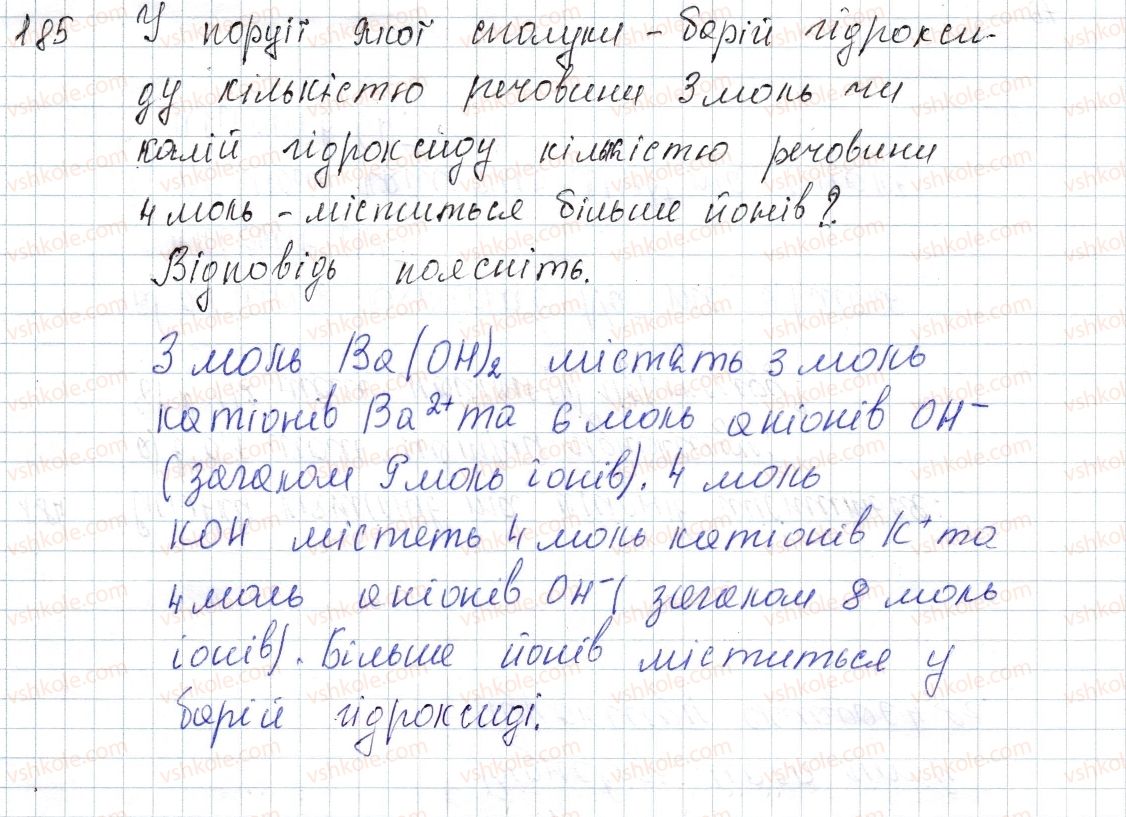 185 У порції якої сполуки - барій гідрокси-
ду кількістю речовини 3 моль чи
калій гідроксиду кількістю речовини
4 моль - міститься більше йонів?
Відповідь поясніть.
3 моль Ba(OH)₂ містять 3 моль
катіонів Ba²⁺ та 6 моль аніонів OH⁻
(загалом 9 моль іонів). 4 моль
KOH містеть 4 моль катіонів K⁺ та
4 моль аніонів OH⁻ (загалом 8 моль
іонів). Більше йонів міститься у
барій гідроксиді.